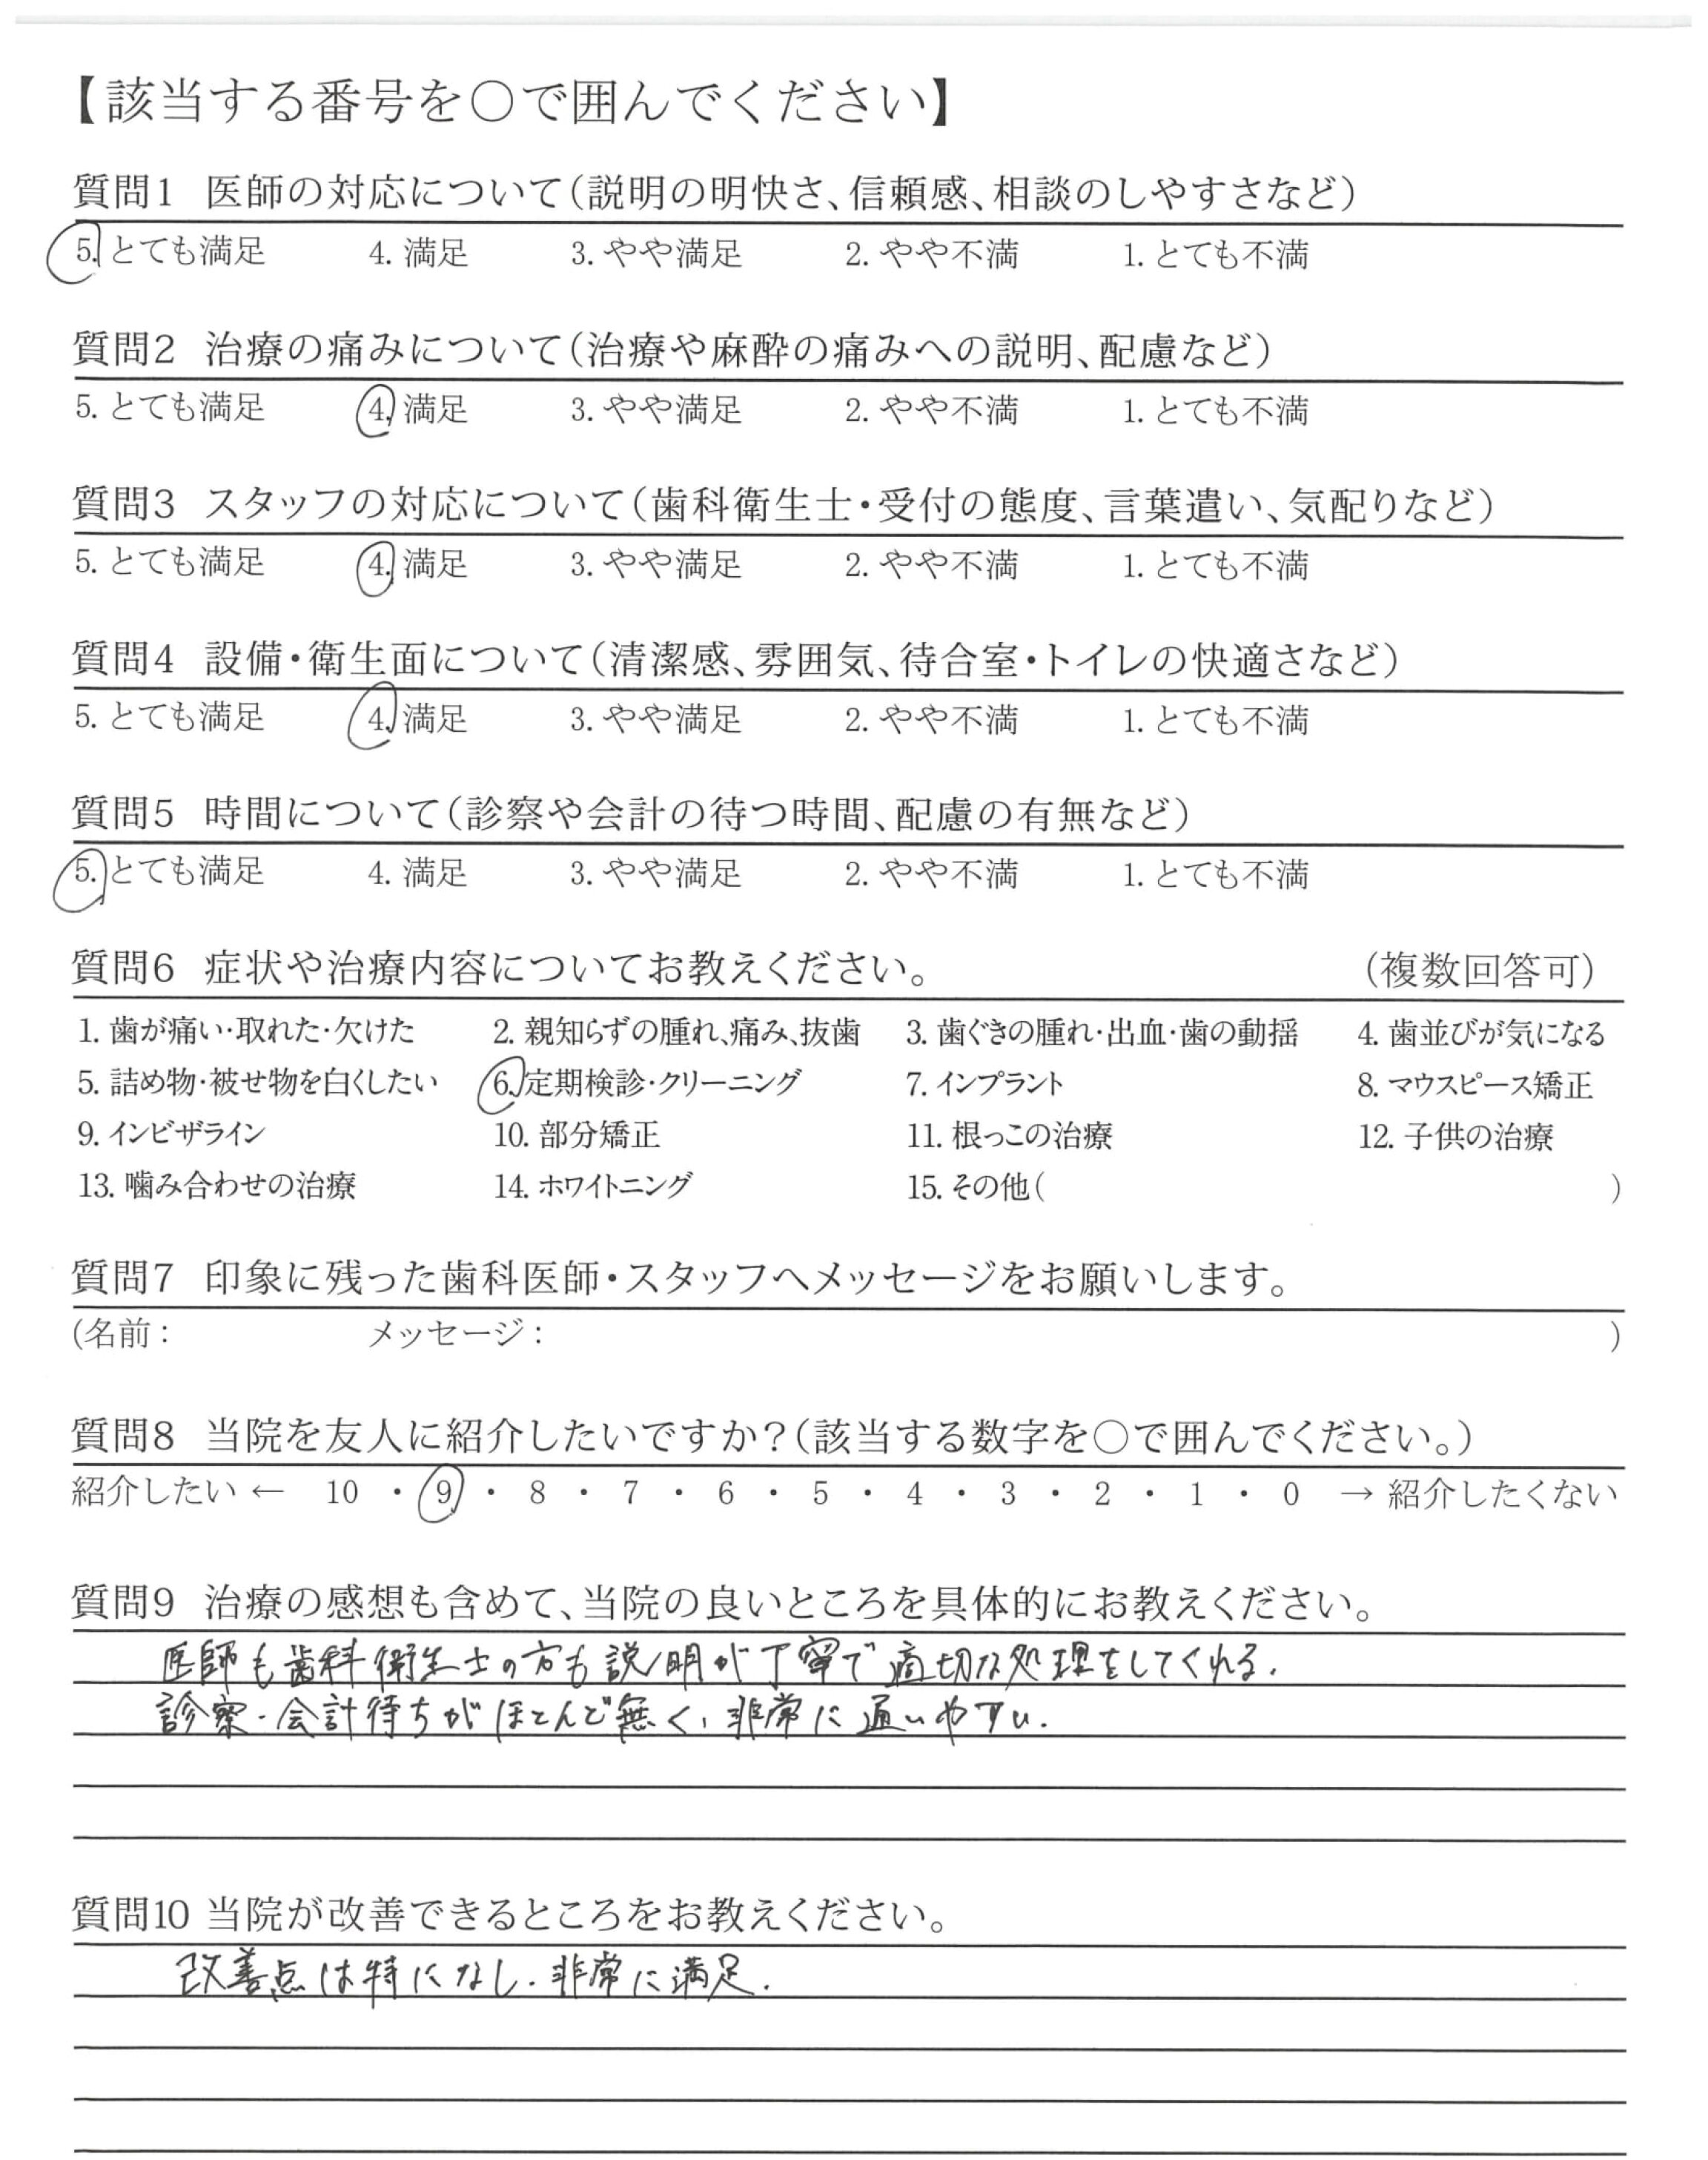 【該当する番号を○で囲んでください】
質問1 医師の対応について(説明の明快さ、信頼感、相談のしやすさなど)
5. とても満足 4. 満足 3. やや満足 2. やや不満 1. とても不満
質問2 治療の痛みについて(治療や麻酔の痛みへの説明、配慮など)
5. とても満足 4. 満足 3. やや満足 2. やや不満 1. とても不満
質問3 スタッフの対応について(歯科衛生士・受付の態度、言葉遣い、気配りなど)
5. とても満足 4. 満足 3. やや満足 2. やや不満 1. とても不満
質問4 設備・衛生面について(清潔感、雰囲気、待合室・トイレの快適さなど)
5. とても満足 4. 満足 3. やや満足 2. やや不満 1. とても不満
質問5 時間について(診察や会計の待つ時間、配慮の有無など)
5. とても満足 4. 満足 3. やや満足 2. やや不満 1. とても不満
質問6 症状や治療内容についてお教えください。 (複数回答可)
1. 歯が痛い・取れた・欠けた 2. 親知らずの腫れ、痛み、抜歯 3. 歯ぐきの腫れ・出血・歯の動揺 4. 歯並びが気になる
5. 詰め物・被せ物を白くしたい 6. 定期検診・クリーニング 7. インプラント 8. マウスピース矯正
9. インビザライン 10. 部分矯正 11. 根っこの治療 12. 子供の治療
13. 噛み合わせの治療 14. ホワイトニング 15. その他( )
質問7 印象に残った歯科医師・スタッフへメッセージをお願いします。
(名前: メッセージ: )
質問8 当院を友人に紹介したいですか?(該当する数字を○で囲んでください。)
紹介したい ← 10 ・ 9 ・ 8 ・ 7 ・ 6 ・ 5 ・ 4 ・ 3 ・ 2 ・ 1 ・ 0 → 紹介したくない
質問9 治療の感想も含めて、当院の良いところを具体的にお教えください。
医師も歯科衛生士の方も説明が丁寧で適切な処理をしてくれる.
診察・会計待ちがほとんど無く、非常に通いやすい.
質問10 当院が改善できるところをお教えください。
改善点は特になし. 非常に満足.